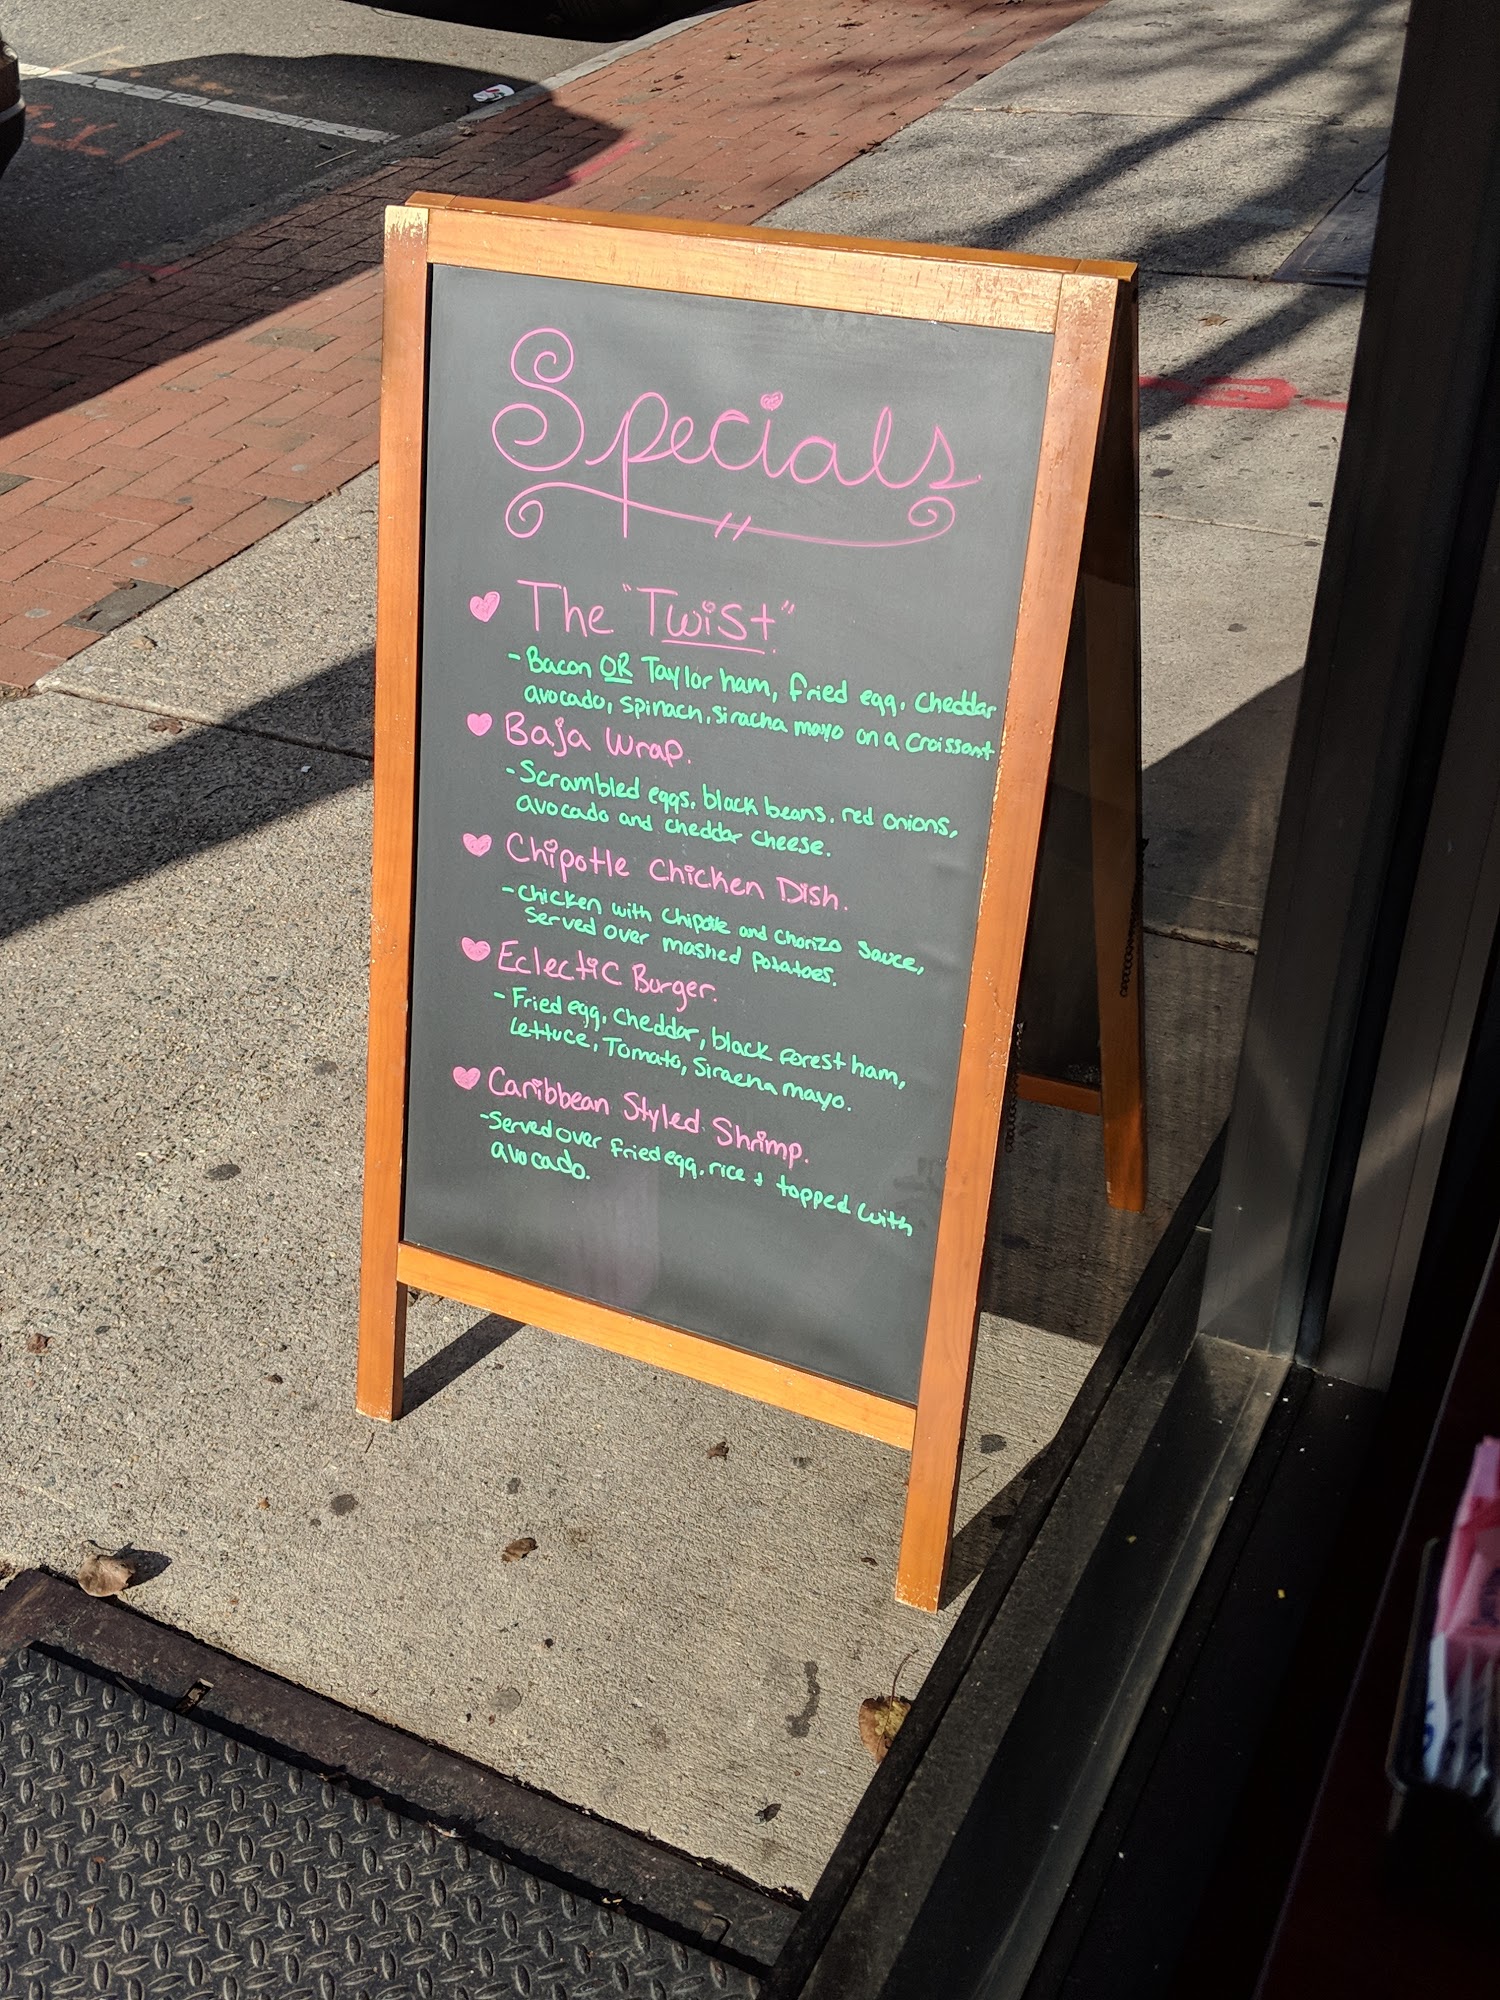 Specials
The "Twist"
- Bacon OR Taylor ham, fried egg, cheddar
avocado, spinach, siracha mayo on a croissant
Baja Wrap.
- Scrambled eggs, black beans, red onions,
avocado and cheddar cheese.
Chipotle Chicken Dish.
- Chicken with Chipotle and Chorizo Sauce,
Served over mashed potatoes.
Eclectic Burger.
- Fried egg, cheddar, black forest ham,
lettuce, Tomato, Siracha mayo.
Caribbean Styled Shrimp.
- Served over fried egg, rice + topped with
avocado.